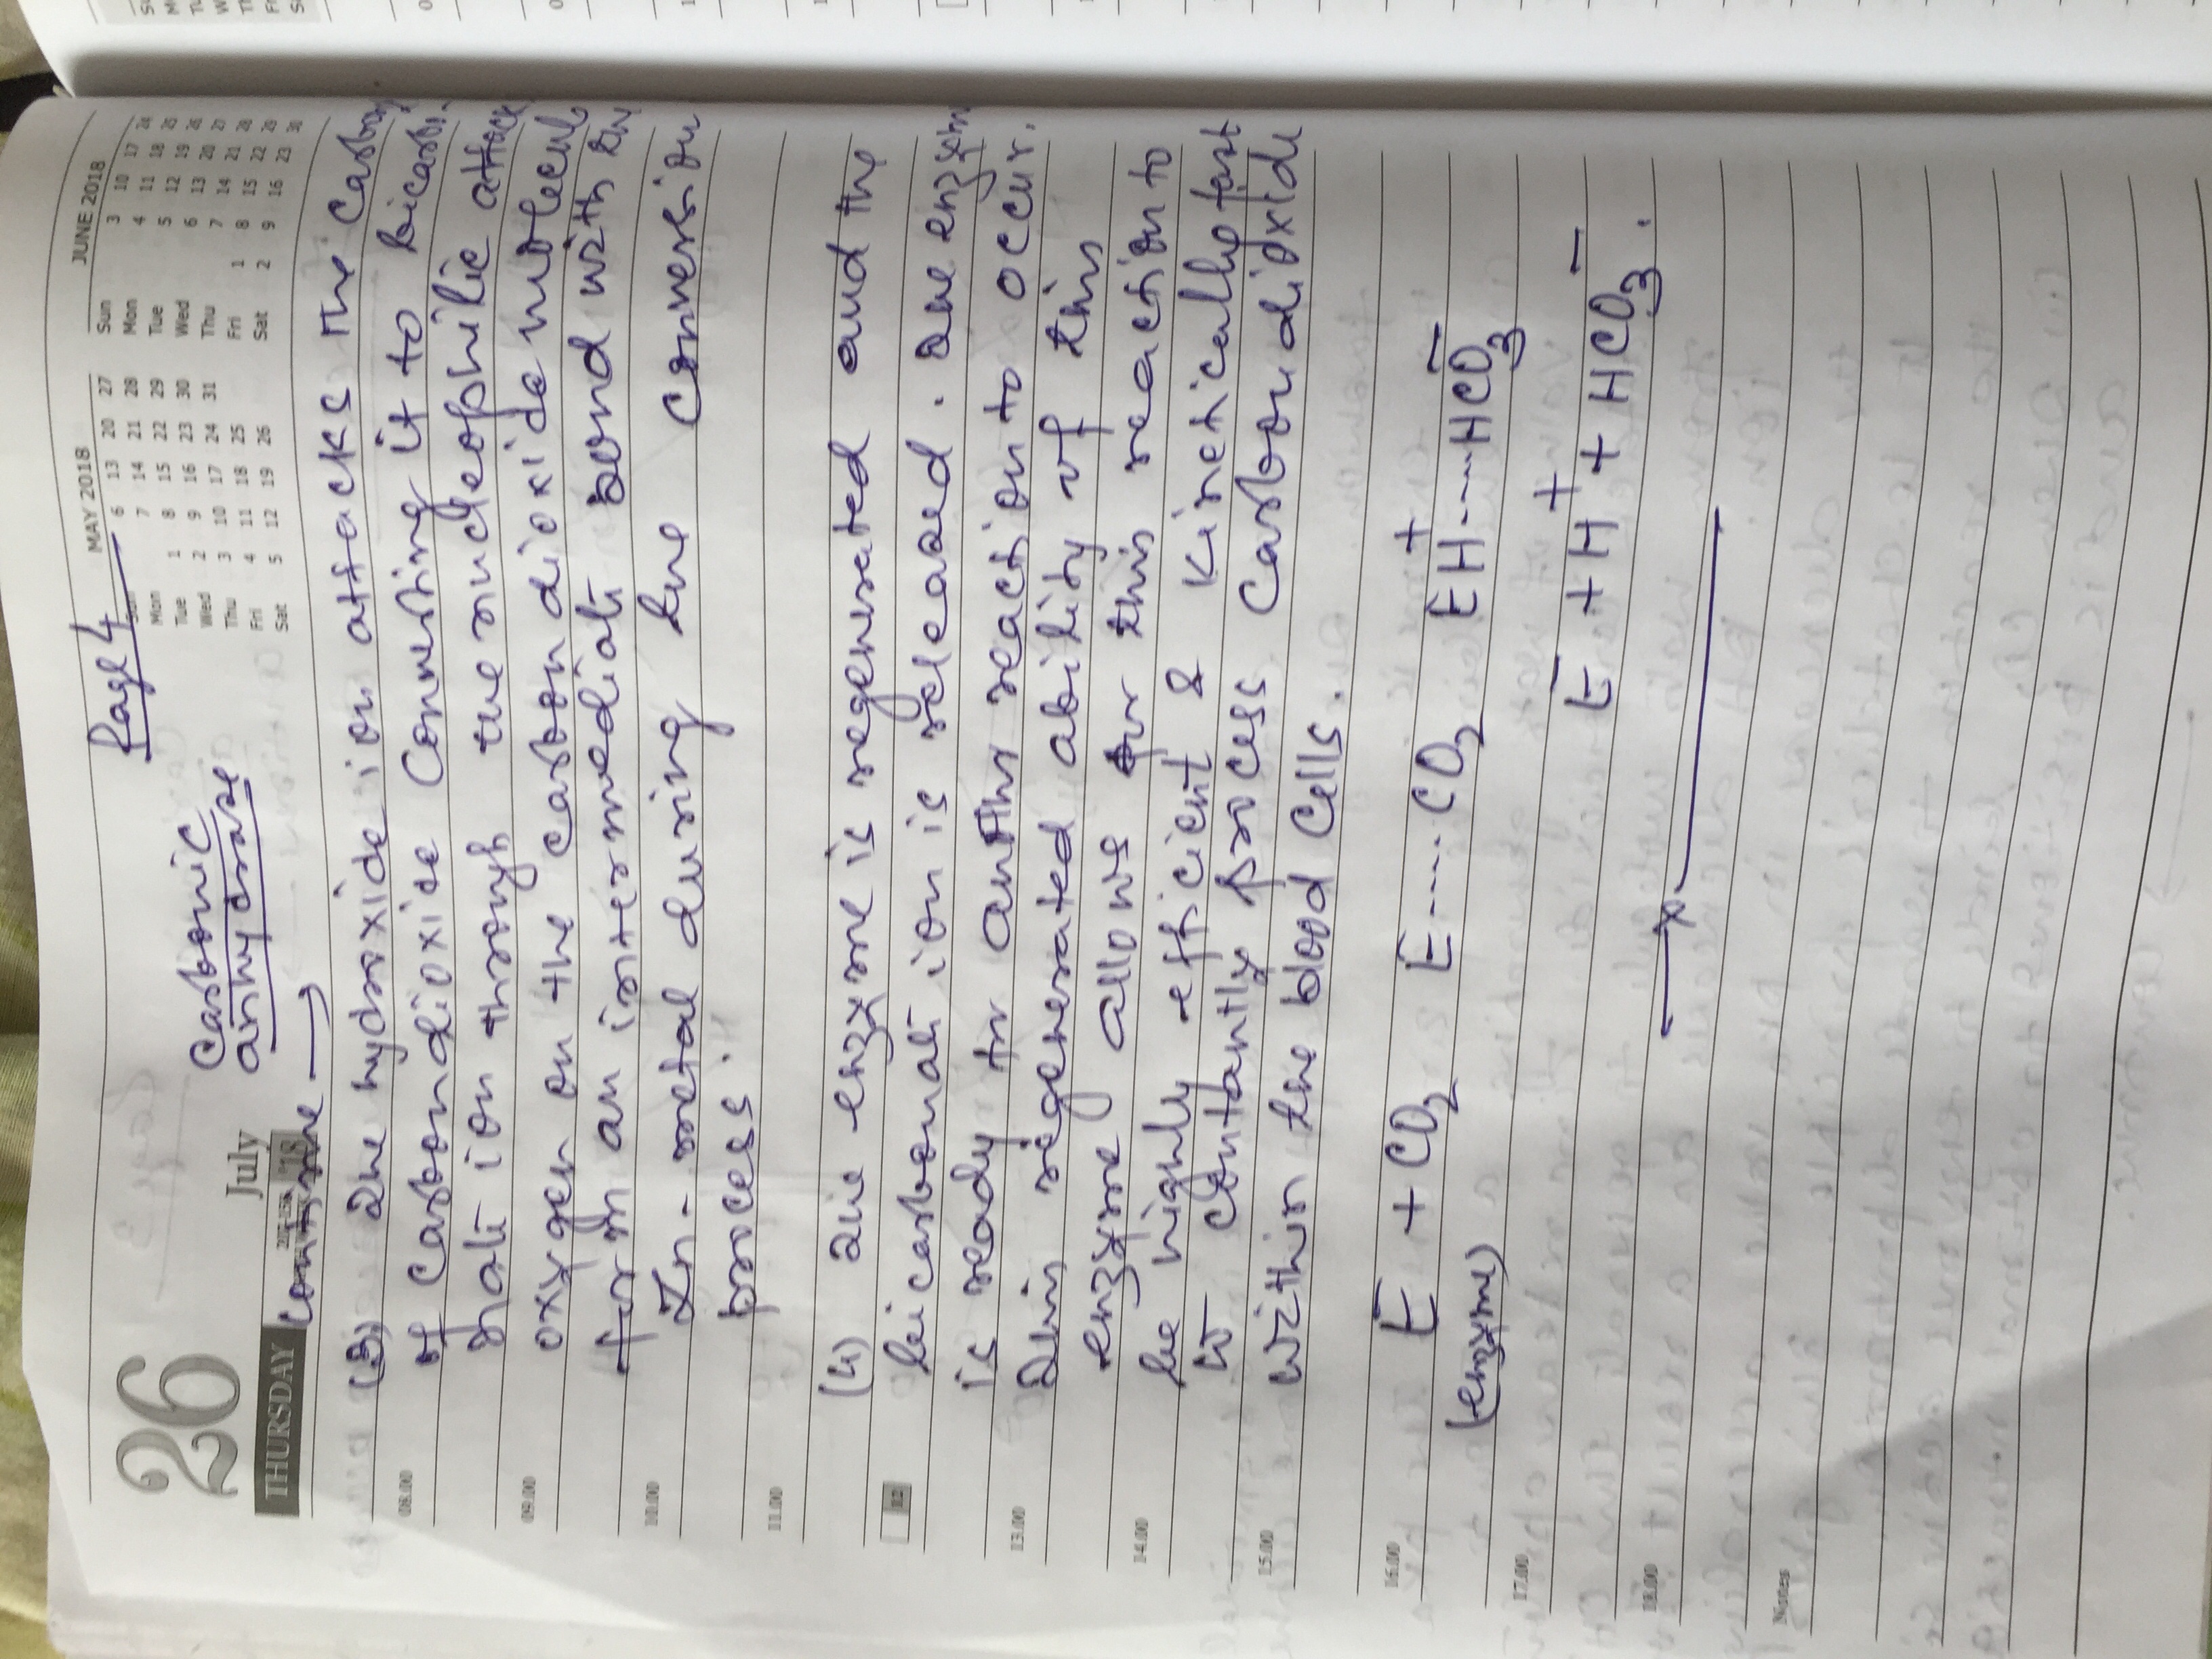 26
July
THURSDAY
'18
Page 4
MAY 2018
Sun 6 13 20 27
Mon 7 14 21 28
Tue 1 8 15 22 29
Wed 2 9 16 23 30
Thu 3 10 17 24 31
Fri 4 11 18 25
Sat 5 12 19 26
JUNE 2018
Sun 3 10 17 24
Mon 4 11 18 25
Tue 5 12 19 26
Wed 6 13 20 27
Thu 7 14 21 28
Fri 1 8 15 22 29
Sat 2 9 16 23 30
Carbonic
anhydrase
(3) The hydroxide ion attacks the Carbon
of Carbondioxide Converting it to bicarbo-
nate ion through the nucleophilic attack
oxygen on the carbon dioxide molecule
form an intermediate bond with the
Zn-metal during the conversion
process.
(4) The enzyme is regenerated and the
bicarbonate ion is released. The enzyme
is ready for another reaction to occur.
This regenerated ability of this
enzyme allows for this reaction to
be highly efficient & kinetically fast
to contantly process Carbondioxide
within the blood cells.
E + CO2 E----CO2 EH+----HCO3-
(enzyme)
E + H+ + HCO3-.
x
08.00
09.00
10.00
11.00
12
13.00
14.00
15.00
16.00
17.00
18.00
Notes